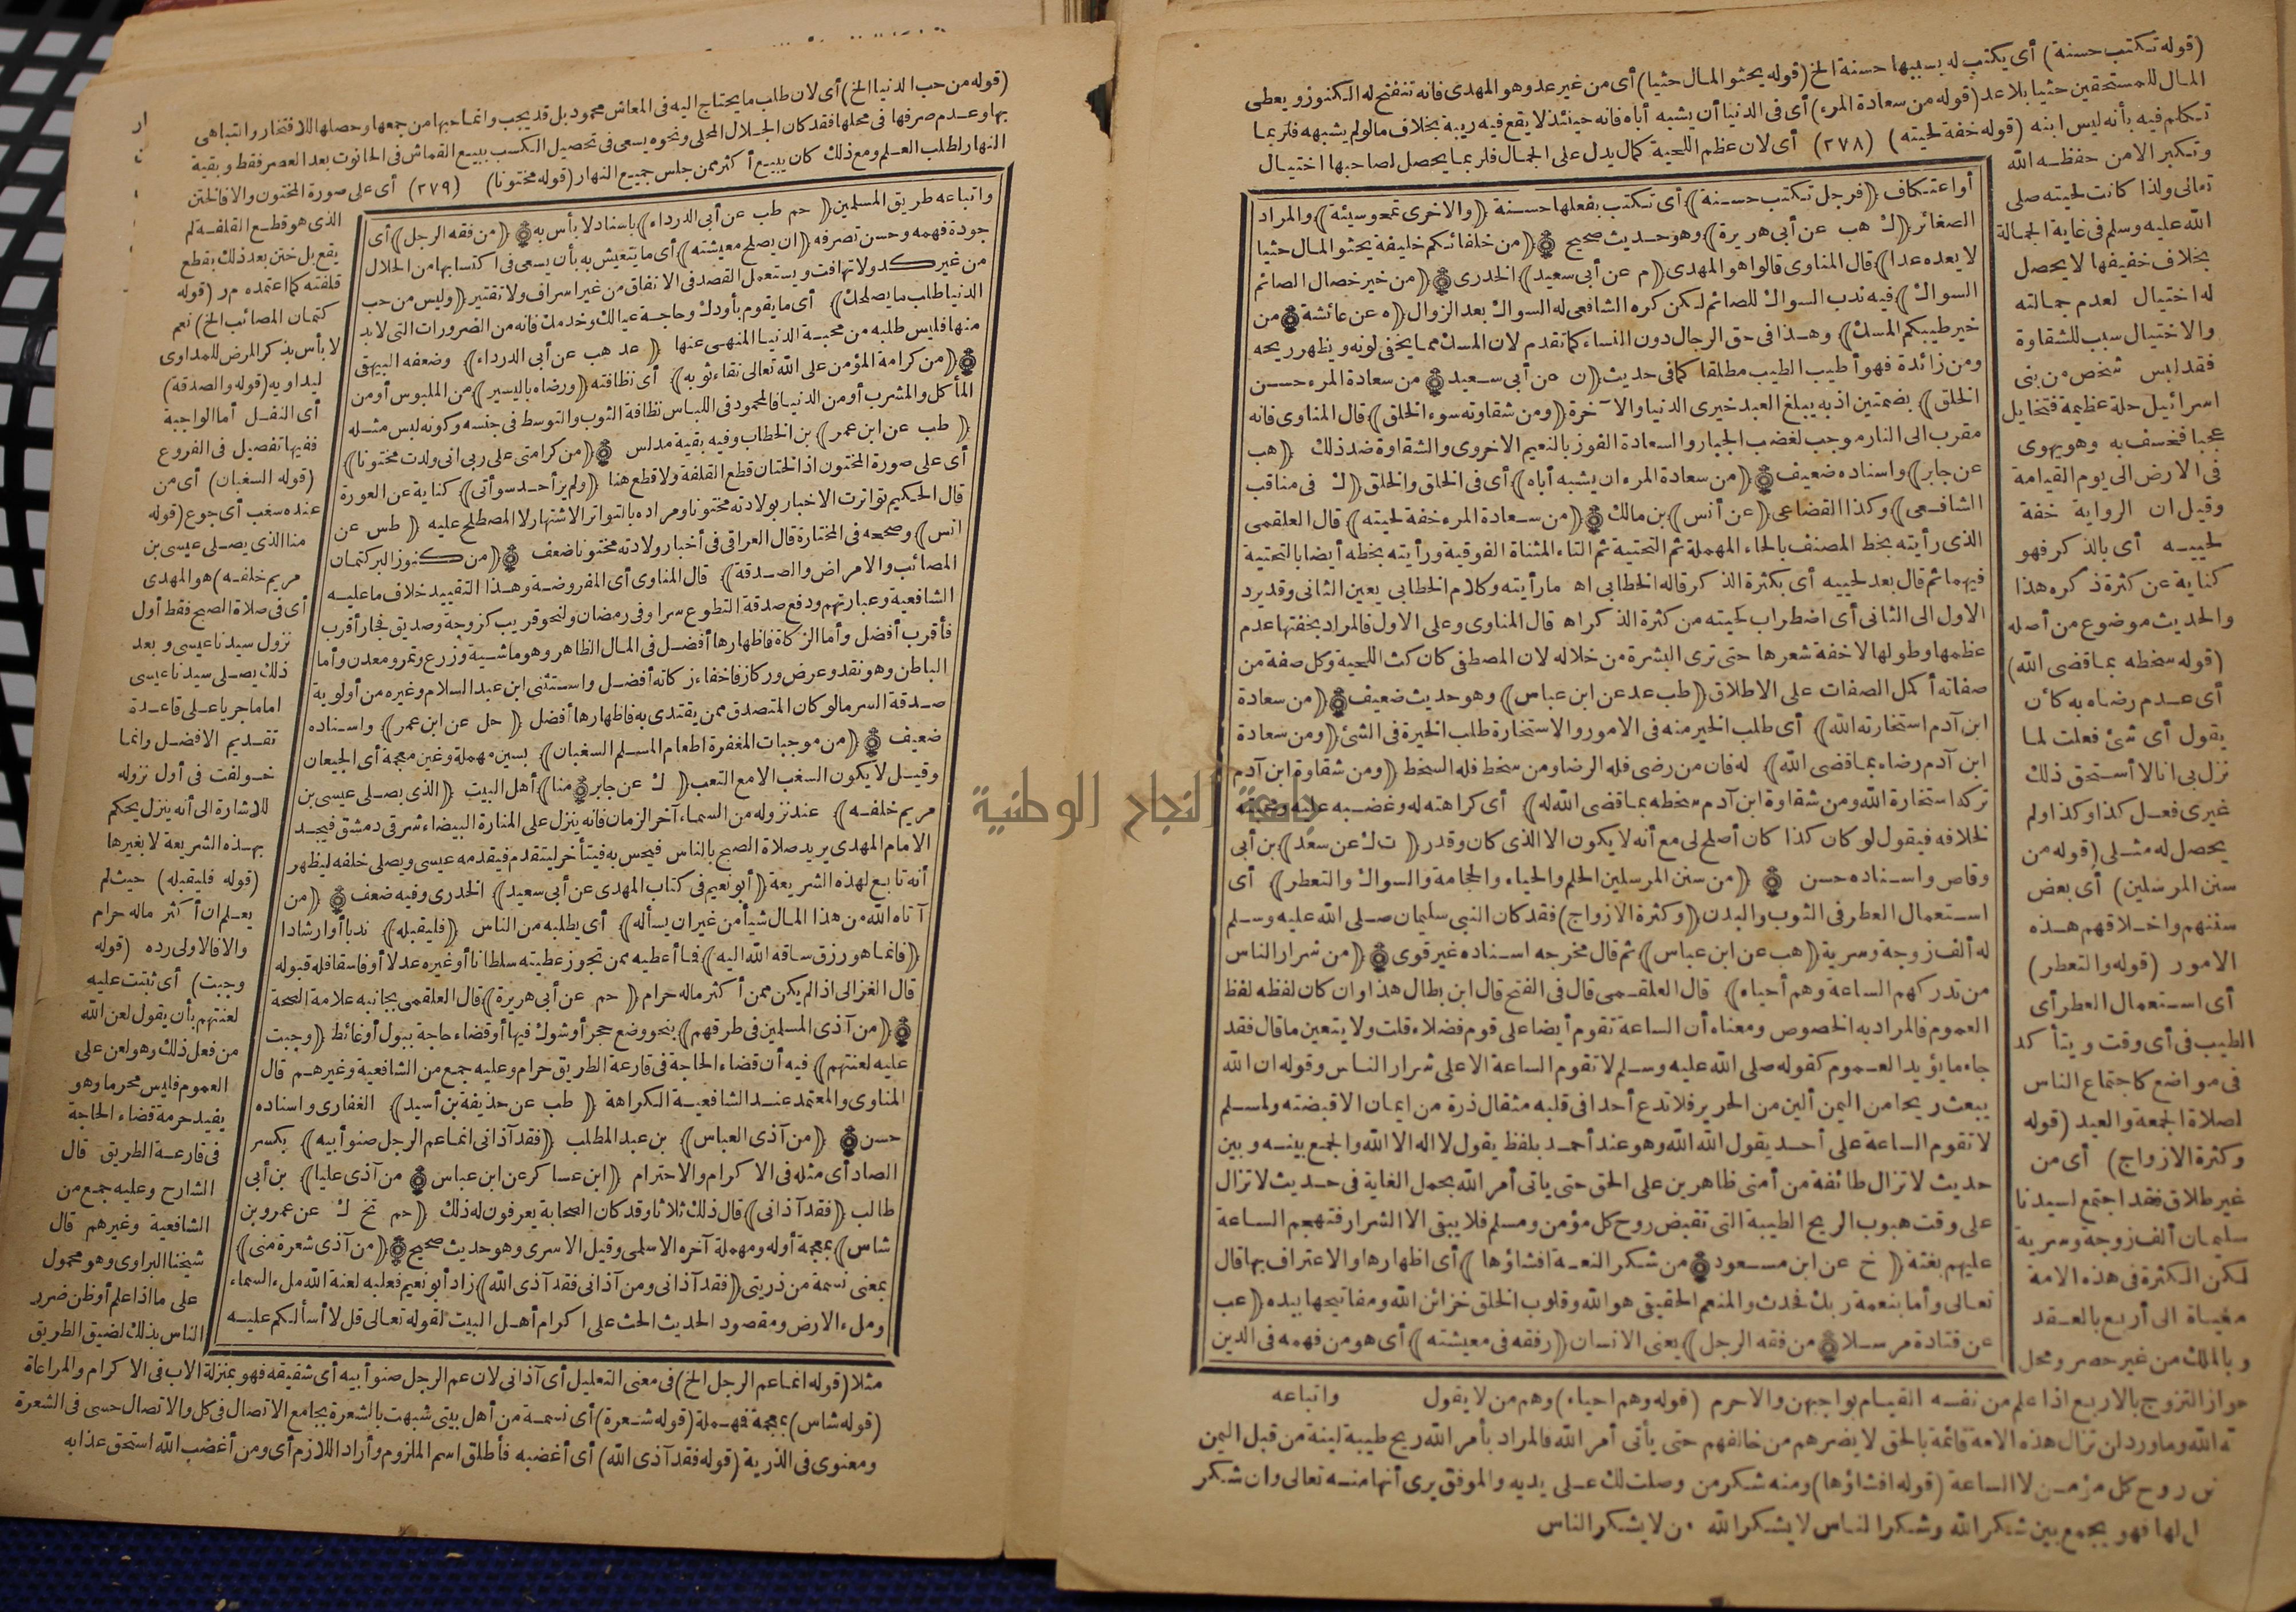 (قوله تكتب حسنة) أى يكتب له بسببها حسنة الخ (قوله يحثو المال حثيا) أى من غير عد وهو المهدى فانه تنفتح له الكنوز ويعطى
المال للمستحقين حثيا بلا عد (قوله من سعادة المرء) أى فى الدنيا أن يشبه أباه فانه حينئذ لا يقع فيه ريبة بخلاف ما لو لم يشبهه فلربما
تكلم فيه بأنه ليس ابنه (قوله خفة لحيته) (٢٧٨) أى لان عظم اللحية كمال يدل على الجمال فلربما يحصل لصاحبها اختيال
وتكبر الا من حفظه الله
تعالى ولذا كانت لحيته صلى
الله عليه وسلم فى غاية الجمالة
بخلاف خفيفها لا يحصل
له اختيال لعدم جمالته
والاختيال سبب للشقاوة
فقد لبس شخص من بنى
اسرائيل حلة عظيمة فتخايل
عجبا فخسف به وهو يهوى
فى الارض الى يوم القيامة
وقيل ان الرواية خفة
لحييه أى بالذكر فهو
كناية عن كثرة ذكره هذا
والحديث موضوع من أصله
(قوله سخطه بما قضى الله)
أى عدم رضاه به كأن
يقول أى شئ فعلت لما
نزل بى انا لا أستحق ذلك
غيرى فعل كذا وكذا ولم
يحصل له مثلى (قوله من
سنن المرسلين) أى بعض
سننهم واخلاقهم هذه
الامور (قوله والتعطر)
أى استعمال العطر أى
الطيب فى أى وقت ويتأكد
فى مواضع كاجتماع الناس
لصلاة الجمعة والعيد (قوله
وكثرة الازواج) أى من
غير طلاق فقد اجتمع لسيدنا
سليمان ألف زوجة وسرية
لكن الكثرة فى هذه الامة
مغياة الى أربع بالعقد
وبالملك من غير حصر ومحل
أو اعتكاف ﴿فرجل تكتب حسنة﴾ أى تكتب بفعلها حسنة ﴿والاخرى تمحو سيئة﴾ والمراد
الصغائر ﴿ك هب عن أبى هريرة﴾ وهو حديث صحيح ﴿من خلفائكم خليفة يحثو المال حثيا
لا يعده عدا﴾ قال المناوى قالوا هو المهدى ﴿م عن أبى سعيد﴾ الخدرى ﴿من خير خصال الصائم
السواك﴾ فيه ندب السواك للصائم لكن كره الشافعى له السواك بعد الزوال ﴿ه عن عائشة من
خير طيبكم المسك﴾ وهذا فى حق الرجال دون النساء كما تقدم لان المسك مما يخفى لونه ويظهر ريحه
ومن زائدة فهو أطيب الطيب مطلقا كما فى حديث ﴿ن عن أبى سعيد من سعادة المرء حسن
الخلق﴾ بضمتين اذ به يبلغ العبد خيرى الدنيا والآخرة ﴿ومن شقاوته سوء الخلق﴾ قال المناوى فانه
مقرب الى النار موجب لغضب الجبار والسعادة الفوز بالنعيم الاخروى والشقاوة ضد ذلك ﴿هب
عن جابر﴾ واسناده ضعيف ﴿من سعادة المرء ان يشبه أباه﴾ أى فى الخلق والخلق ﴿ك فى مناقب
الشافعى﴾ وكذا القضاعى ﴿عن أنس﴾ بن مالك ﴿من سعادة المرء خفة لحيته﴾ قال العلقمى
الذى رأيته بخط المصنف بالحاء المهملة ثم التحتية ثم التاء المثناة الفوقية ورأيته بخطه أيضا بالتحتية
فيهما ثم قال بعد لحييه أى بكثرة الذكر قاله الخطابى اه ما رأيته وكلام الخطابى يعين الثانى وقد يرد
الاول الى الثانى أى اضطراب لحيته من كثرة الذكر اه قال المناوى وعلى الاول فالمراد بخفتها عدم
عظمها وطولها لا خفة شعرها حتى ترى البشرة من خلاله لان المصطفى كان كث اللحية وكل صفة من
صفاته أكمل الصفات على الاطلاق ﴿طب عد عن ابن عباس﴾ وهو حديث ضعيف ﴿من سعادة
ابن آدم استخارته الله﴾ أى طلب الخير منه فى الامور والاستخارة طلب الخيرة فى الشئ ﴿ومن سعادة
ابن آدم رضاه بما قضى الله﴾ له فان من رضى فله الرضا ومن سخط فله السخط ﴿ومن شقاوة ابن آدم
تركه استخارة الله ومن شقاوة ابن آدم سخطه بما قضى الله له﴾ أى كراهته له وغضبه عليه ومحبته
لخلافه فيقول لو كان كذا كان أصلح لى مع أنه لا يكون الا الذى كان وقدر ﴿ت ك عن سعد﴾ بن أبى
وقاص واسناده حسن ﴿من سنن المرسلين الحلم والحياء والحجامة والسواك والتعطر﴾ أى
استعمال العطر فى الثوب والبدن ﴿وكثرة الازواج﴾ فقد كان النبى سليمان صلى الله عليه وسلم
له ألف زوجة وسرية ﴿هب عن ابن عباس﴾ ثم قال مخرجه اسناده غير قوى ﴿من شرار الناس
من تدركهم الساعة وهم أحياء﴾ قال العلقمى قال فى الفتح قال ابن بطال هذا وان كان لفظه لفظ
العموم فالمراد به الخصوص ومعناه أن الساعة تقوم أيضا على قوم فضلاء قلت ولا يتعين ما قال فقد
جاء ما يؤيد العموم كقوله صلى الله عليه وسلم لا تقوم الساعة الا على شرار الناس وقوله ان الله
يبعث ريحا من اليمن ألين من الحرير فلا تدع أحدا فى قلبه مثقال ذرة من ايمان الا قبضته ولمسلم
لا تقوم الساعة على أحد يقول الله الله وهو عند أحمد بلفظ يقول لا اله الا الله والجمع بينه وبين
حديث لا تزال طائفة من أمتى ظاهرين على الحق حتى يأتى أمر الله بحمل الغاية فى حديث لا تزال
على وقت هبوب الريح الطيبة التى تقبض روح كل مؤمن ومسلم فلا يبقى الا الشرار فتهجم الساعة
عليهم بغتة ﴿خ عن ابن مسعود من شكر النعمة افشاؤها﴾ أى اظهارها والاعتراف بها قال
تعالى وأما بنعمة ربك فحدث والمنعم الحقيقى هو الله وقلوب الخلق خزائن الله ومفاتيحها بيده ﴿عب
عن قتادة مرسلا من فقه الرجل﴾ يعنى الانسان ﴿رفقه فى معيشته﴾ أى هو من فهمه فى الدين
جواز التزوج بالاربع اذا علم من نفسه القيام بواجبهن والاحرم (قوله وهم احياء) وهم من لا يقول واتباعه
الله وما ورد لن تزال هذه الامة قائمة بالحق لا يضرهم من خالفهم حتى يأتى أمر الله فالمراد بأمر الله ريح طيبة لينة من قبل اليمن
روح كل مؤمن لا الساعة (قوله افشاؤها) ومنه شكر من وصلت لك على يديه والموفق يرى أنها منه تعالى وان شكر
لها فهو يجمع بين شكر الله وشكر الناس لا يشكر الله من لا يشكر الناس
(قوله من حب الدنيا الخ) أى لان طلب ما يحتاج اليه فى المعاش محمود بل قد يجب وانما حبها من جمعها وحصلها للافتخار والتباهى
بها وعدم صرفها فى محلها فقد كان الجلال المحلى ونحوه يسعى فى تحصيل الكسب ببيع القماش فى الحانوت بعد العصر فقط وبقية
النهار لطلب العلم ومع ذلك كان يبيع أكثر ممن جلس جميع النهار (قوله مختونا) (٢٧٩) أى على صورة المختون والا فالختن
واتباعه طريق المسلمين ﴿حم طب عن أبى الدرداء﴾ باسناد لا بأس به ﴿من فقه الرجل﴾ أى
جودة فهمه وحسن تصرفه ﴿ان يصلح معيشته﴾ أى ما يتعيش به بأن يسعى فى اكتسابها من الحلال
من غير كد ولا تهافت ويستعمل القصد فى الانفاق من غير اسراف ولا تقتير ﴿وليس من حب
الدنيا طلب ما يصلحك﴾ أى ما يقوم بأودك وحاجة عيالك وخدمك فانه من الضرورات التى لا بد
منها فليس طلبه من محبة الدنيا المنهى عنها ﴿عد هب عن أبى الدرداء﴾ وضعفه البيهقى
﴿من كرامة المؤمن على الله تعالى نقاء ثوبه﴾ أى نظافته ﴿ورضاه باليسير﴾ من الملبوس أو من
المأكل والمشرب أو من الدنيا فالمحمود فى اللباس نظافة الثوب والتوسط فى جنسه وكونه لبس مثله
﴿طب عن ابن عمر﴾ بن الخطاب وفيه بقية مدلس ﴿من كرامتى على ربى انى ولدت مختونا﴾
أى على صورة المختون اذ الختان قطع القلفة ولا قطع هنا ﴿ولم ير أحد سوأتى﴾ كناية عن العورة
قال الحكيم تواترت الاخبار بولادته مختونا ومراده بالتواتر الاشتهار لا المصطلح عليه ﴿طس عن
انس﴾ وصححه فى المختارة قال العراقى فى أخبار ولادته مختونا ضعف ﴿من كنوز البر كتمان
المصائب والامراض والصدقة﴾ قال المناوى أى المفروضة وهذا التقييد خلاف ما عليه
الشافعية وعبارتهم ودفع صدقة التطوع سرا وفى رمضان ولنحو قريب كزوجة وصديق فجار أقرب
فأقرب أفضل وأما الزكاة فاظهارها أفضل فى المال الظاهر وهو ماشية وزرع وثمر ومعدن وأما
الباطن وهو نقد وعرض وركاز فاخفاء زكاته أفضل واستثنى ابن عبد السلام وغيره من أولوية
صدقة السر ما لو كان المتصدق ممن يقتدى به فاظهارها أفضل ﴿حل عن ابن عمر﴾ واسناده
ضعيف ﴿من موجبات المغفرة اطعام المسلم السغبان﴾ بسين مهملة وغين معجمة أى الجيعان
وقيل لا يكون السغب الا مع التعب ﴿ك عن جابر منا﴾ أهل البيت ﴿الذى يصلى عيسى بن
مريم خلفه﴾ عند نزوله من السماء آخر الزمان فانه ينزل على المنارة البيضاء شرقى دمشق فيجد
الامام المهدى يريد صلاة الصبح بالناس فيحس به فيتأخر ليتقدم فيقدمه عيسى ويصلى خلفه ليظهر
أنه تابع لهذه الشريعة ﴿أبو نعيم فى كتاب المهدى عن أبى سعيد﴾ الخدرى وفيه ضعف ﴿من
آتاه الله من هذا المال شيأ من غير ان يسأله﴾ أى يطلبه من الناس ﴿فليقبله﴾ ندبا أو ارشادا
﴿فانما هو رزق ساقه الله اليه﴾ فما أعطيه ممن تجوز عطيته سلطانا أو غيره عدلا أو فاسقا فله قبوله
قال الغزالى اذا لم يكن ممن أكثر ماله حرام ﴿حم عن أبى هريرة﴾ قال العلقمى بجانبه علامة الصحة
﴿من آذى المسلمين فى طرقهم﴾ بنحو وضع حجر أو شوك فيها أو قضاء حاجة ببول أو غائط ﴿وجبت
عليه لعنتهم﴾ فيه أن قضاء الحاجة فى قارعة الطريق حرام وعليه جمع من الشافعية وغيرهم قال
المناوى والمعتمد عند الشافعية الكراهة ﴿طب عن حذيفة بن أسيد﴾ الغفارى واسناده
حسن ﴿من آذى العباس﴾ بن عبد المطلب ﴿فقد آذانى انما عم الرجل صنو أبيه﴾ بكسر
الصاد أى مثله فى الاكرام والاحترام ﴿ابن عساكر عن ابن عباس من آذى عليا﴾ بن أبى
طالب ﴿فقد آذانى﴾ قال ذلك ثلاثا وقد كان الصحابة يعرفون له ذلك ﴿حم تخ ك عن عمرو بن
شاس﴾ بمعجمة أوله ومهملة آخره الاسلمى وقيل الاسدى وهو حديث صحيح ﴿من آذى شعرة منى﴾
بمعنى نسمة من ذريتى ﴿فقد آذانى ومن آذانى فقد آذى الله﴾ زاد أبو نعيم فعليه لعنة الله ملء السماء
وملء الارض ومقصود الحديث الحث على اكرام أهل البيت لقوله تعالى قل لا أسألكم عليه
الذى هو قطع القلفة لم
يقع بل ختن بعد ذلك بقطع
قلفته كما اعتمده م ر (قوله
كتمان المصائب الخ) نعم
لا بأس بذكر المرض للمداوى
ليداويه (قوله والصدقة)
أى النفل أما الواجبة
ففيها تفصيل فى الفروع
(قوله السغبان) أى من
عنده سغب أى جوع (قوله
منا الذى يصلى عيسى بن
مريم خلفه) هو المهدى
أى فى صلاة الصبح فقط أول
نزول سيدنا عيسى وبعد
ذلك يصلى سيدنا عيسى
اماما جريا على قاعدة
تقديم الافضل وانما
خولفت فى أول نزوله
للاشارة الى أنه ينزل يحكم
بهذه الشريعة لا بغيرها
(قوله فليقبله) حيث لم
يعلم ان أكثر ماله حرام
والا فالاولى رده (قوله
وجبت) أى ثبتت عليه
لعنتهم بأن يقول لعن الله
من فعل ذلك وهو لعن على
العموم فليس محرما وهو
يفيد حرمة قضاء الحاجة
فى قارعة الطريق قال
الشارح وعليه جمع من
الشافعية وغيرهم قال
شيخنا البراوى وهو محمول
على ما اذا علم أو ظن ضرر
الناس بذلك لضيق الطريق
مثلا (قوله انما عم الرجل الخ) فى معنى التعليل أى آذانى لان عم الرجل صنو أبيه أى شقيقه فهو بمنزلة الاب فى الاكرام والمراعاة
(قوله شاس) بمعجمة فمهملة (قوله شعرة) أى نسمة من أهل بيتى شبهت بالشعرة بجامع الاتصال فى كل والاتصال حسى فى الشعرة
ومعنوى فى الذرية (قوله فقد آذى الله) أى أغضبه فأطلق اسم الملزوم وأراد اللازم أى ومن أغضب الله استحق عذابه
جامعة النجاح الوطنية